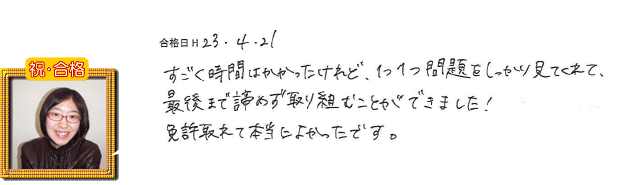 合格日 H 23.4.21
祝・合格
すごく時間はかかったけれど、1つ1つ問題をしっかり見てくれて、
最後まで諦めず取り組むことができました!
免許取れて本当によかったです。